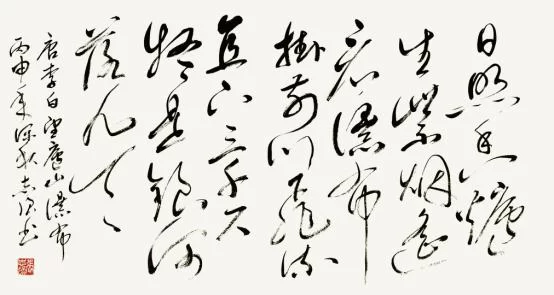 日照香爐
生紫烟遥
看瀑布
掛前川飛流
直下三千尺
疑是銀河
落九天
唐李白望廬山瀑布
丙申年深秋志书